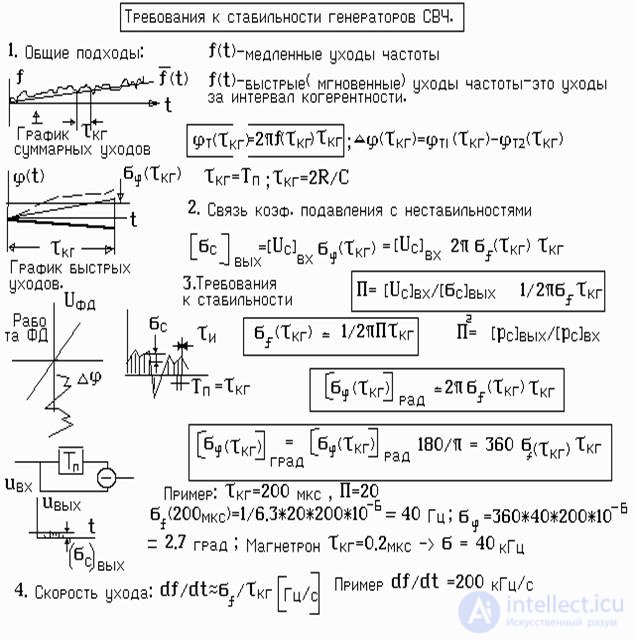 Требования к стабильности генераторов СВЧ.
1. Общие подходы:
f(t)-медленные уходы частоты
f f̅(t)
f(t)-быстрые( мгновенные) уходы частоты-это уходы
за интервал когерентности.
t
График τкг
суммарных уходов
φт(τкг)=2πf(τкг)τкг ; △φ(τкг)=φт1 (τкг)-φт2(τкг)
φ(t) бφ(τкг)
τкг=Тп ; τкг=2R/C
t
2. Связь коэф. подавления с нестабильностями
τкг
[бс]вых =[Uс]вх бφ(τкг) = [Uс]вх 2π бf(τкг) τкг
График быстрых
уходов.
3.Требования
к стабильности
П= [Uс]вх/[бс]вых 1/2πбf τкг
Uфд
Рабо
та ФД
бс τи
бf(τкг) ≃ 1/2πПτкг
П² = [pс]вых/[pс]вх
△φ
Тп=τкг
[бφ(τкг)]рад ≃2π бf(τкг) τкг
[бφ(τкг)]град = [бφ(τкг)]рад 180/π = 360 бf(τкг) τкг
Тп
uвх
Пример: τкг=200 мкс , П=20
uвых
бf(200мкс)=1/6.3*20*200*10⁻⁶ = 40 Гц; бφ =360*40*200*10⁻⁶
t
= 2.7 град ; Магнетрон τкг=0.2мкс -> б = 40 кГц
(бс)вых
4. Скорость ухода: df/dt≈бf/τкг [Гц/с] Пример df/dt =200 кГц/с
Ai intellect.icu
Искусственный разум